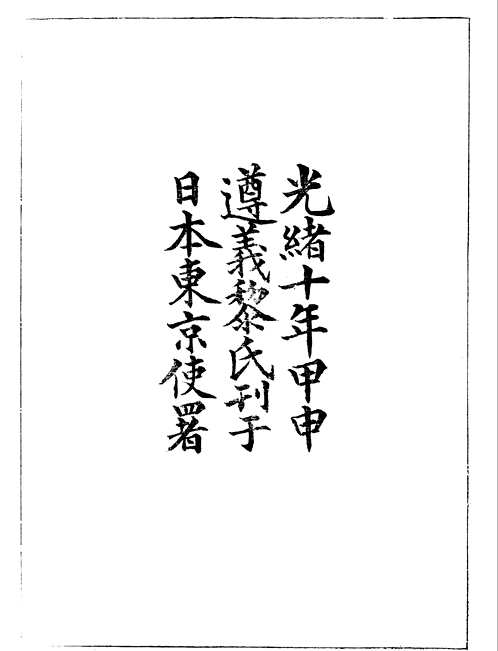 光緒十年甲申
遵義黎氏刊于
日本東京使署